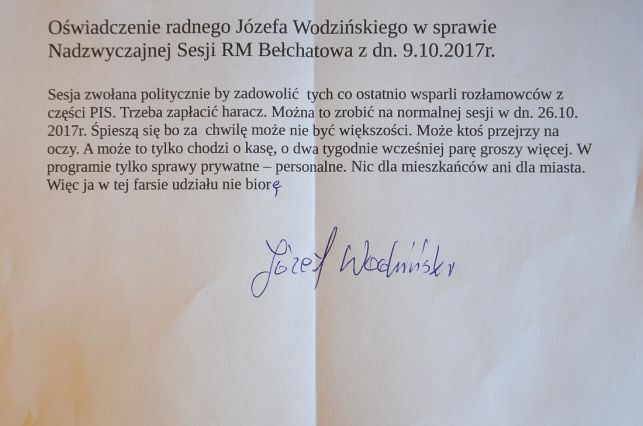 Oświadczenie radnego Józefa Wodzińskiego w sprawie
Nadzwyczajnej Sesji RM Bełchatowa z dn. 9.10.2017r.
Sesja zwołana politycznie by zadowolić tych co ostatnio wsparli rozłamowców z
części PIS. Trzeba zapłacić haracz. Można to zrobić na normalnej sesji w dn. 26.10.
2017r. Śpieszą się bo za chwilę może nie być większości. Może ktoś przejrzy na
oczy. A może to tylko chodzi o kasę, o dwa tygodnie wcześniej parę groszy więcej. W
programie tylko sprawy prywatne – personalne. Nic dla mieszkańców ani dla miasta.
Więc ja w tej farsie udziału nie biorę
Józef Wodziński